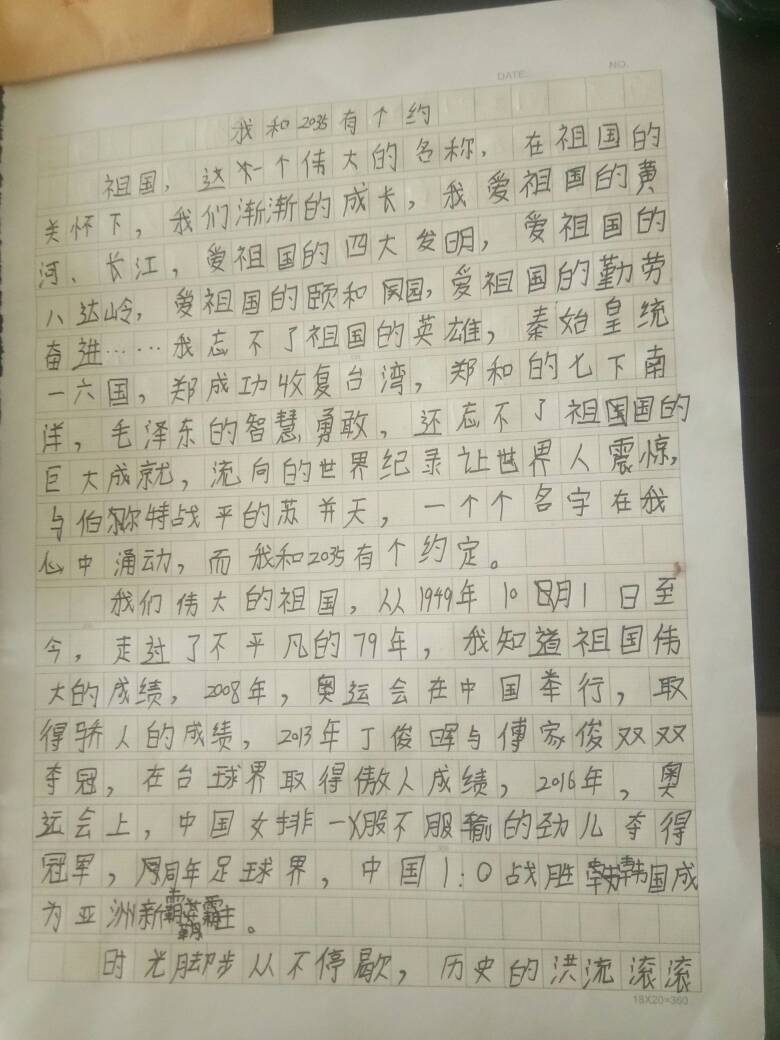 DATE. NO.
我和2035有个约
祖国，这一个伟大的名称，在祖国的
关怀下，我们渐渐的成长，我爱祖国的黄
河、长江，爱祖国的四大发明，爱祖国的
八达岭，爱祖国的颐和园，爱祖国的勤劳
奋进……我忘不了祖国的英雄，秦始皇统
一六国，郑成功收复台湾，郑和的七下南
洋，毛泽东的智慧勇敢，还忘不了祖国的
巨大成就，流向的世界纪录让世界人震惊，
与伯尔特战平的苏并天，一个个名字在我
心中涌动，而我和2035有个约定。
我们伟大的祖国，从1949年10月1日至
今，走过了不平凡的79年，我知道祖国伟
大的成绩，2008年，奥运会在中国举行，取
得骄人的成绩，2013年丁俊晖与傅家俊双双
夺冠，在台球界取得傲人成绩，2016年，奥
运会上，中国女排一股不服输的劲儿夺得
冠军，同年足球界，中国1:0战胜韩国成
为亚洲新霸主。
时光脚步从不停歇，历史的洪流滚滚
18X20=360